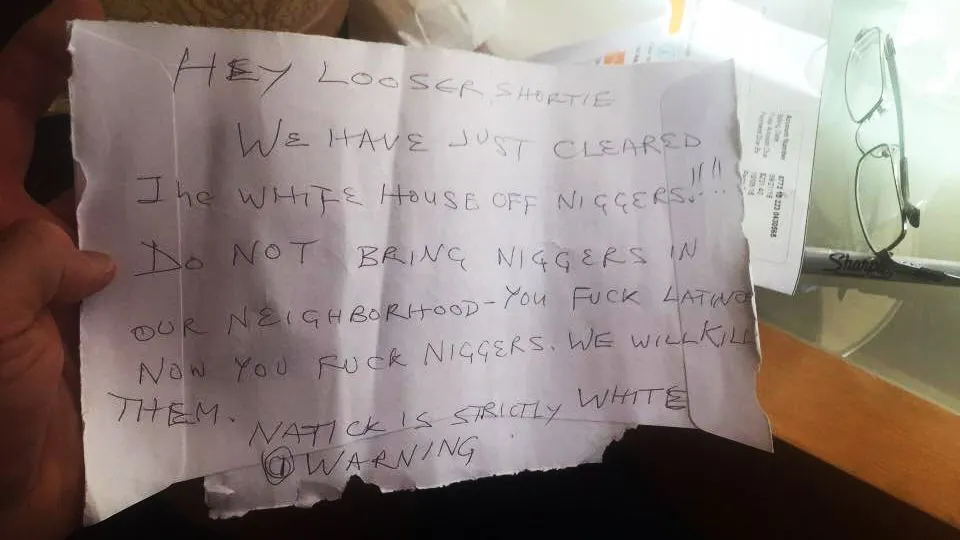 HEY LOOSER, SHORTIE
WE HAVE JUST CLEARED
The WHITE HOUSE OFF NIGGERS!!!!
Do NOT BRING NIGGERS IN
OUR NEIGHBORHOOD - YOU FUCK LATINOS
NOW YOU FUCK NIGGERS. WE WILL KILL
THEM.
NATICK IS STRICTLY WHITE
① WARNING
Account Number
Sharpie